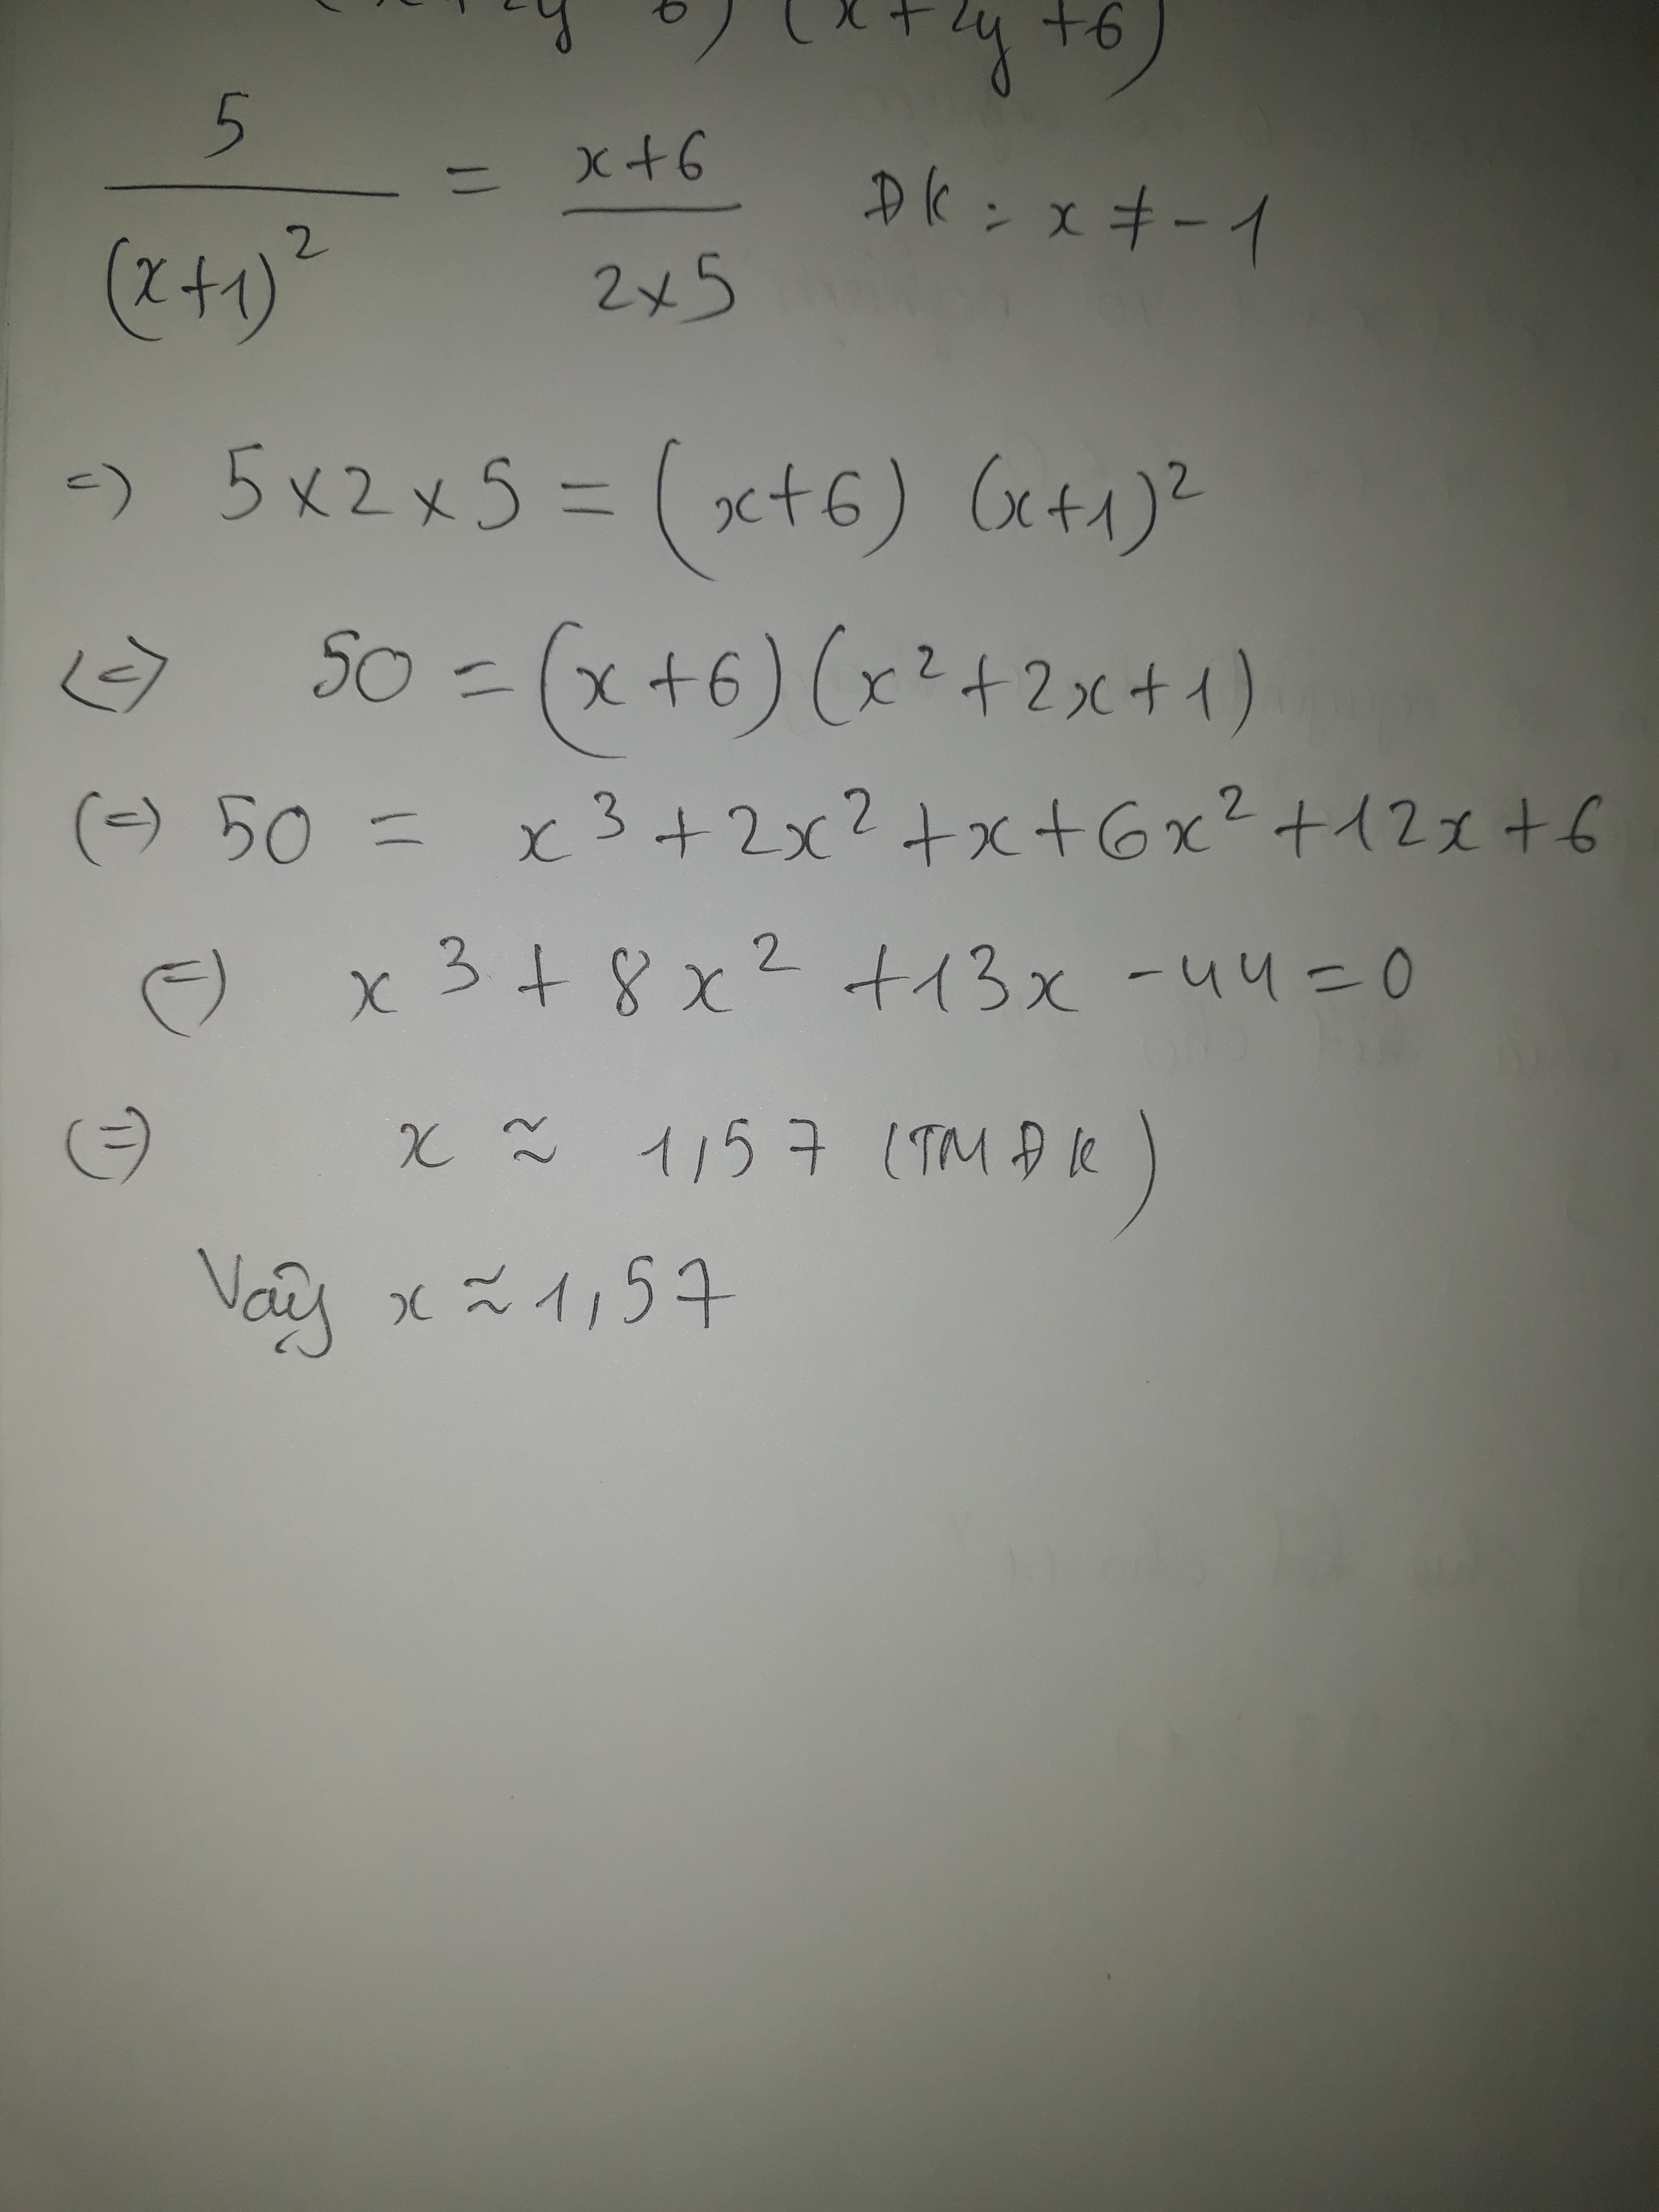 (x+2y 6) (x+2y+6)
5/(x+1)² = x+6/2x5 ĐK: x ≠ -1
=> 5x2x5 = (x+6) (x+1)²
<=> 50 = (x+6)(x²+2x+1)
(=) 50 = x³+2x²+x+6x²+12x+6
(=) x³+8x²+13x-44=0
(=) x ≈ 1,57 (TMĐK)
Vậy x ≈ 1,57